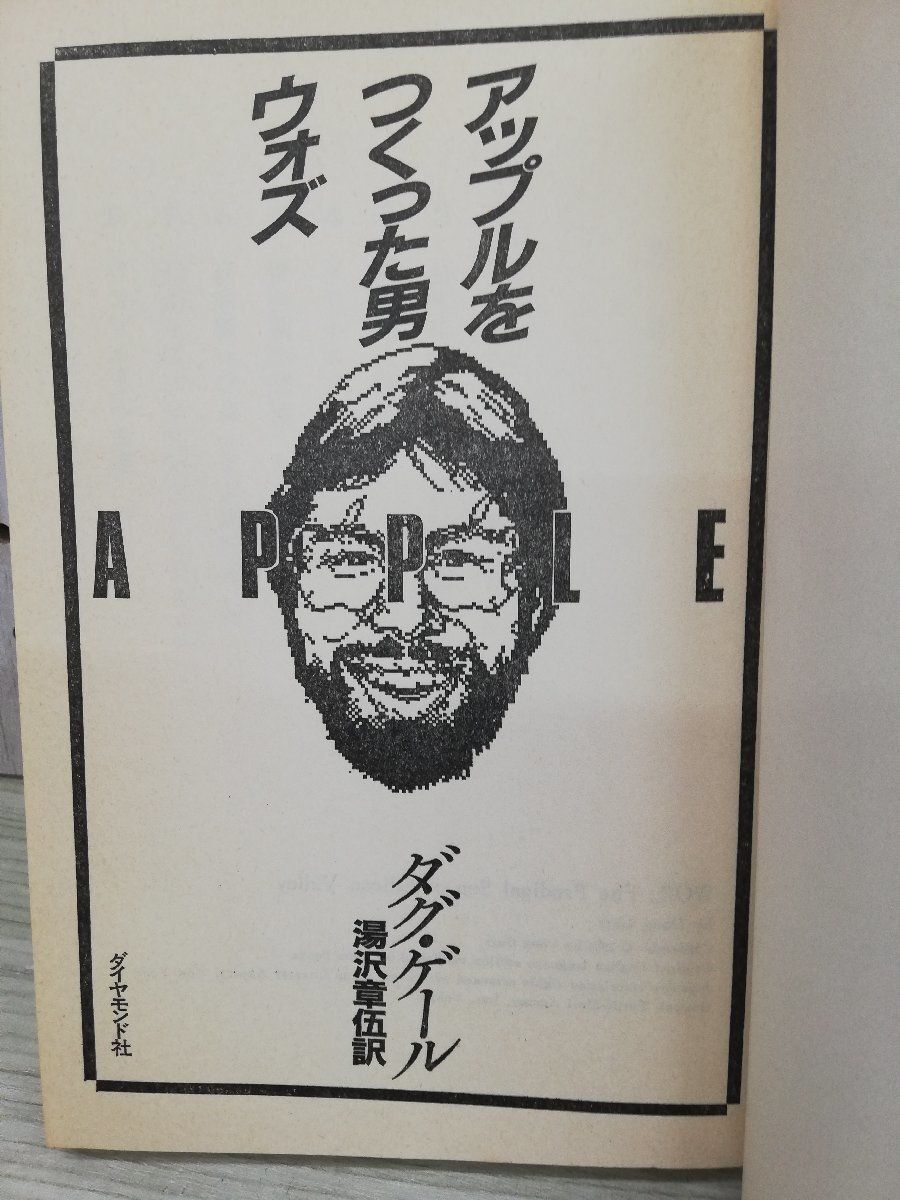 アップルを
つくった男
ウォズ
APPLE
ダグ・ゲール
湯沢章伍訳
ダイヤモンド社